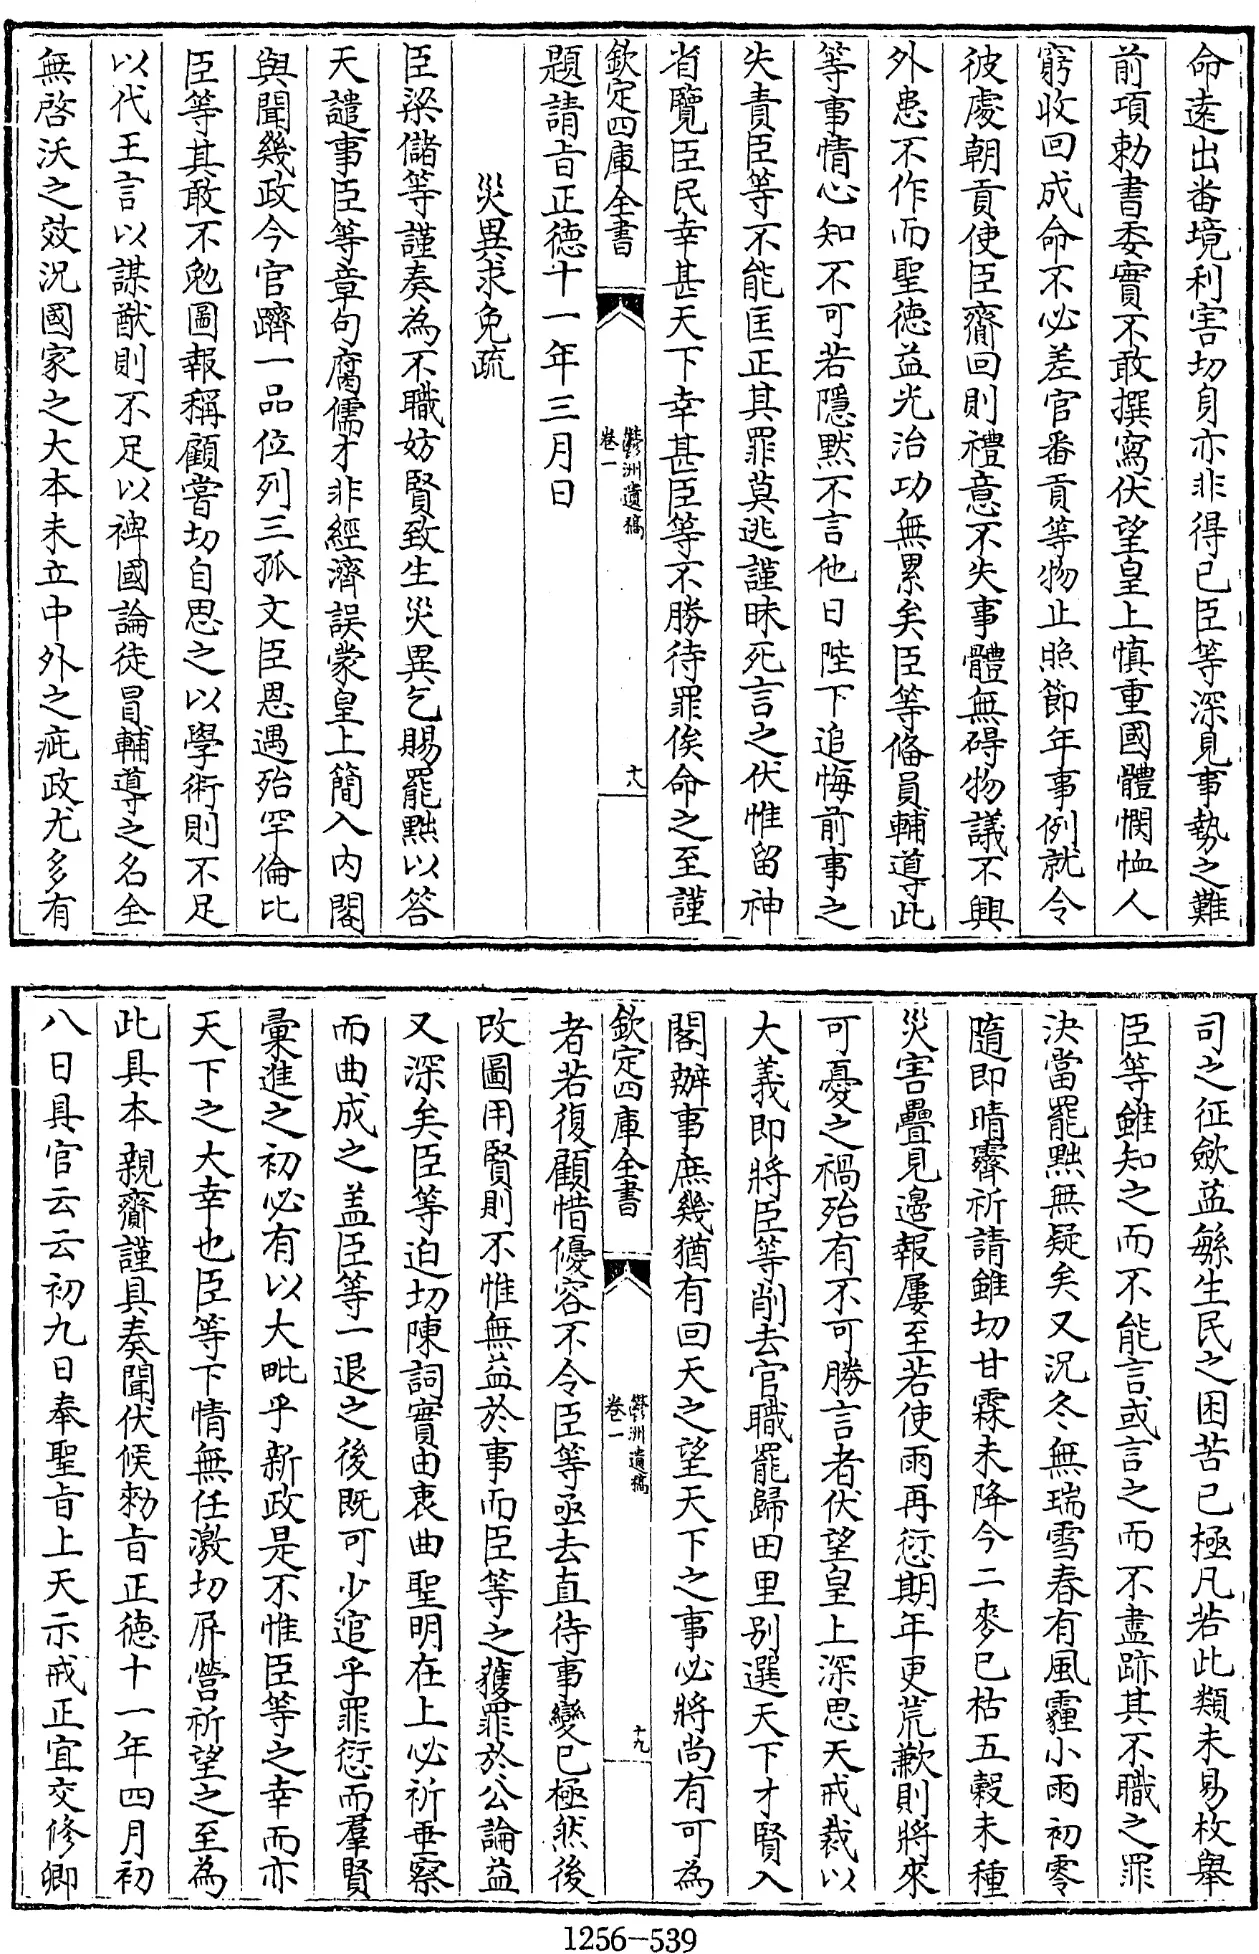 命遠出畨境利害切身亦非得已臣等深見事勢之難
前項勅書委實不敢撰寫伏望皇上慎重國體憫恤人
窮收回成命不必差官畨貢等物止照節年事例就令
彼處朝貢使臣齎回則禮意不失事體無碍物議不興
外患不作而聖德益光治功無累矣臣等備員輔導此
等事情心知不可若隱黙不言他日陛下追悔前事之
失責臣等不能匡正其罪莫逃謹昧死言之伏惟留神
省覽臣民幸甚天下幸甚臣等不勝待罪俟命之至謹
欽定四庫全書
鬱洲遺稿
卷一
十八
題請旨正德十一年三月日
災異求免疏
臣梁儲等謹奏為不職妨賢致生災異乞賜罷黜以答
天譴事臣等章句腐儒才非經濟誤蒙皇上簡入内閣
與聞幾政今官躋一品位列三孤文臣恩遇殆罕倫比
臣等其敢不勉圖報稱顧嘗切自思之以學術則不足
以代王言以謀猷則不足以裨國論徒冒輔導之名全
無啓沃之效况國家之大本未立中外之疵政尤多有
司之征歛益繁生民之困苦已極凡若此類未易枚舉
臣等雖知之而不能言或言之而不盡跡其不職之罪
決當罷黜無疑矣又况冬無瑞雪春有風霾小雨初零
隨即晴霽祈請雖切甘霖未降今二麥已枯五榖未種
災害疊見邉報屢至若使雨再愆期年更荒歉則將來
可憂之禍殆有不可勝言者伏望皇上深思天戒裁以
大義即將臣等削去官職罷歸田里别選天下才賢入
閣辦事庶幾猶有回天之望天下之事必將尚有可為
欽定四庫全書
鬱洲遺稿
卷一
十九
者若復顧惜優容不令臣等亟去直待事變已極然後
改圖用賢則不惟無益於事而臣等之獲罪於公論益
又深矣臣等迫切陳詞實由衷曲聖明在上必祈垂察
而曲成之盖臣等一退之後既可少逭乎罪愆而羣賢
彚進之初必有以大毗乎新政是不惟臣等之幸而亦
天下之大幸也臣等下情無任激切屏營祈望之至為
此具本親齎謹具奏聞伏候勅旨正德十一年四月初
八日具官云云初九日奉聖旨上天示戒正宜交修卿
1256-539